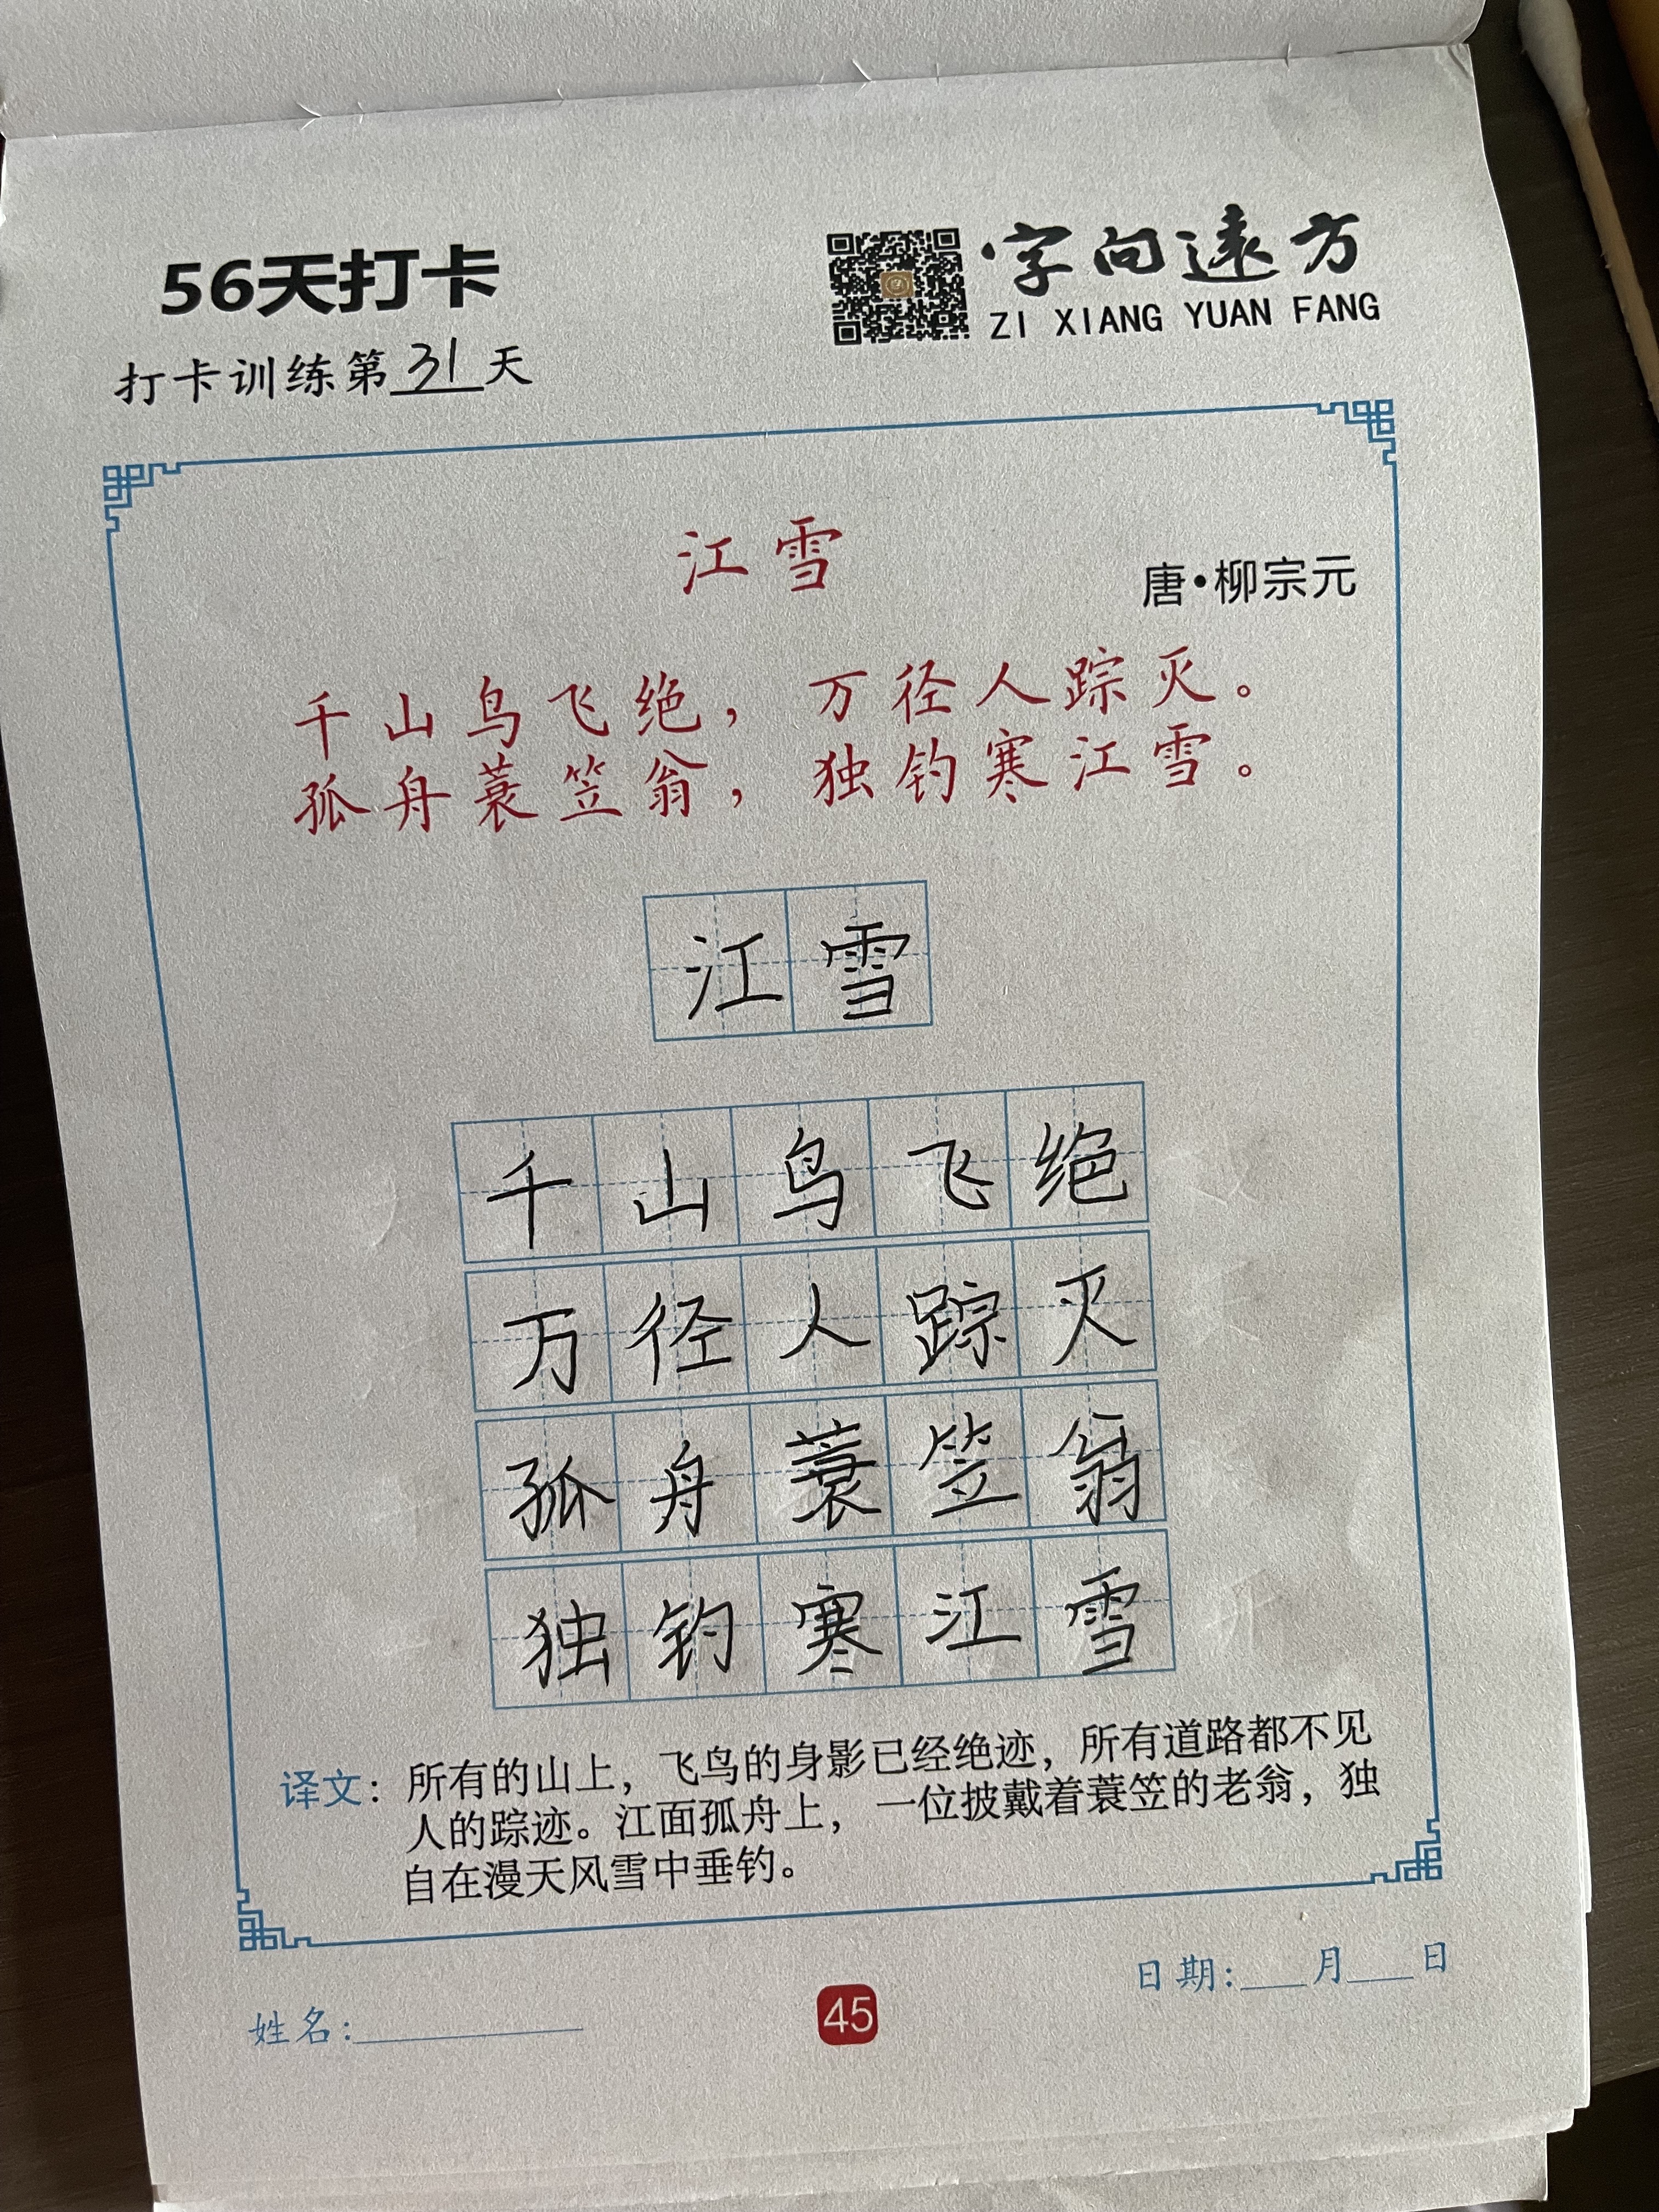 56天打卡
字向遠方
ZI XIANG YUAN FANG
打卡训练第31天
江雪
唐·柳宗元
千山鸟飞绝，万径人踪灭。
孤舟蓑笠翁，独钓寒江雪。
江雪
千山鸟飞绝
万径人踪灭
孤舟蓑笠翁
独钓寒江雪
译文：所有的山上，飞鸟的身影已经绝迹，所有道路都不见
人的踪迹。江面孤舟上，一位披戴着蓑笠的老翁，独
自在漫天风雪中垂钓。
日期:___月___日
姓名:__________
45